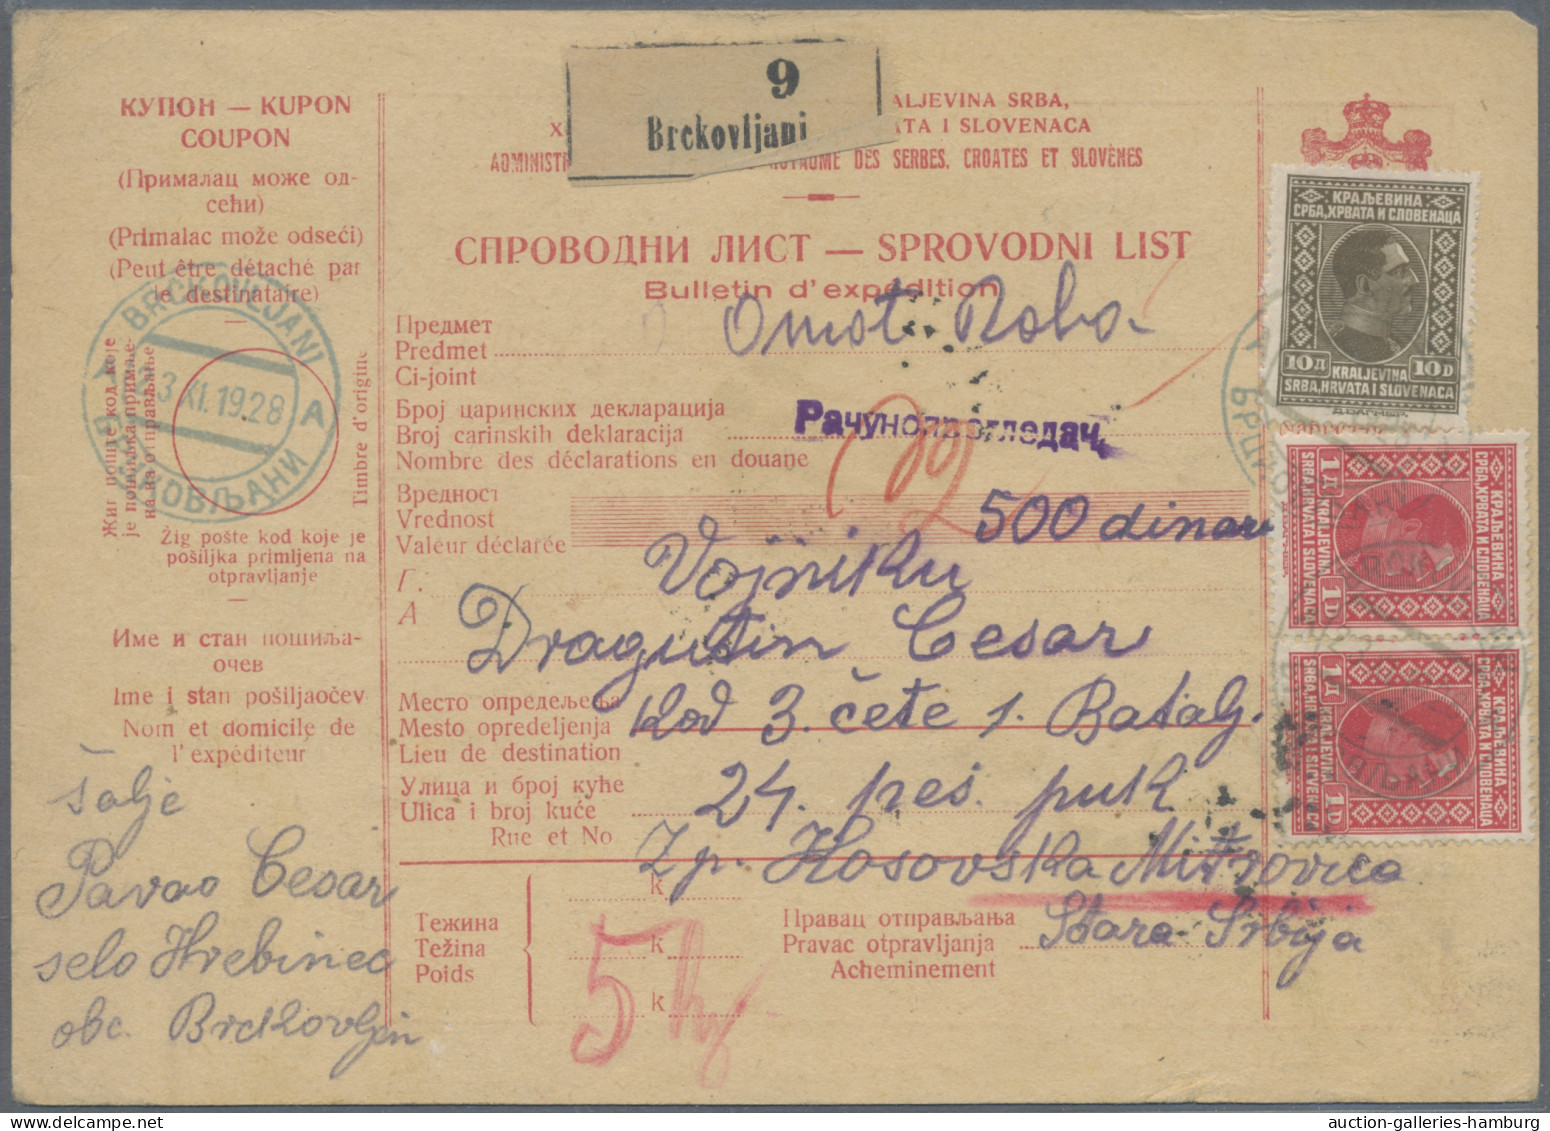 КУПОН — KUPON
COUPON
(Прималац може од-
сећи)
(Primalac može odseći)
(Peut être détaché par
le destinataire)
BRCKOVLJANI
3 XI. 1928
A
Жиг поште код које
је пошиљка примље-
на на отправљање
Timbre d'origine
Žig pošte kod koje je
pošiljka primljena na
otpravljanje
Име и стан пошиља-
очев
Ime i stan pošiljaočev
Nom et domicile de
l'expéditeur
šalje
Pavao Cesar
selo Hrebinec
obc. Brckovljan
9
Brckovljani
ALJEVINA SRBA,
ATA I SLOVENACA
ADMINIST
ROYAUME DES SERBES, CROATES ET SLOVÈNES
СПРОВОДНИ ЛИСТ — SPROVODNI LIST
Bulletin d'expédition
Предмет
Predmet
Ci-joint
Omot Roba
Број царинских декларација
Broj carinskih deklaracija
Nombre des déclarations en douane
Вредност
Vrednost
Valeur déclarée
500 dinar
Г.
А
Vojniku
Dragutin Cesar
Место опредељења
Mesto opredeljenja
Lieu de destination
kod 3. čete 1. Batalj.
Улица и број куће
Ulica i broj kuće
Rue et No
24. peš. puk
Zp. Kosovska Mitrovica
Stara Srbija
Тежина
Težina
Poids
k
k
k
5 kg
Правац отправљања
Pravac otpravljanja
Acheminement
КРАЉЕВИНА
СРБА, ХРВАТА И СЛОВЕНАЦА
10 Д
10 D
KRALJEVINA
SRBA, HRVATA I SLOVENACA
КРАЉЕВИНА
СРБА, ХРВАТА И СЛОВЕНАЦА
1 Д
1 D
KRALJEVINA
SRBA, HRVATA I SLOVENACA
КРАЉЕВИНА
СРБА, ХРВАТА И СЛОВЕНАЦА
1 Д
1 D
KRALJEVINA
SRBA, HRVATA I SLOVENACA
auction-galleries-hamburg